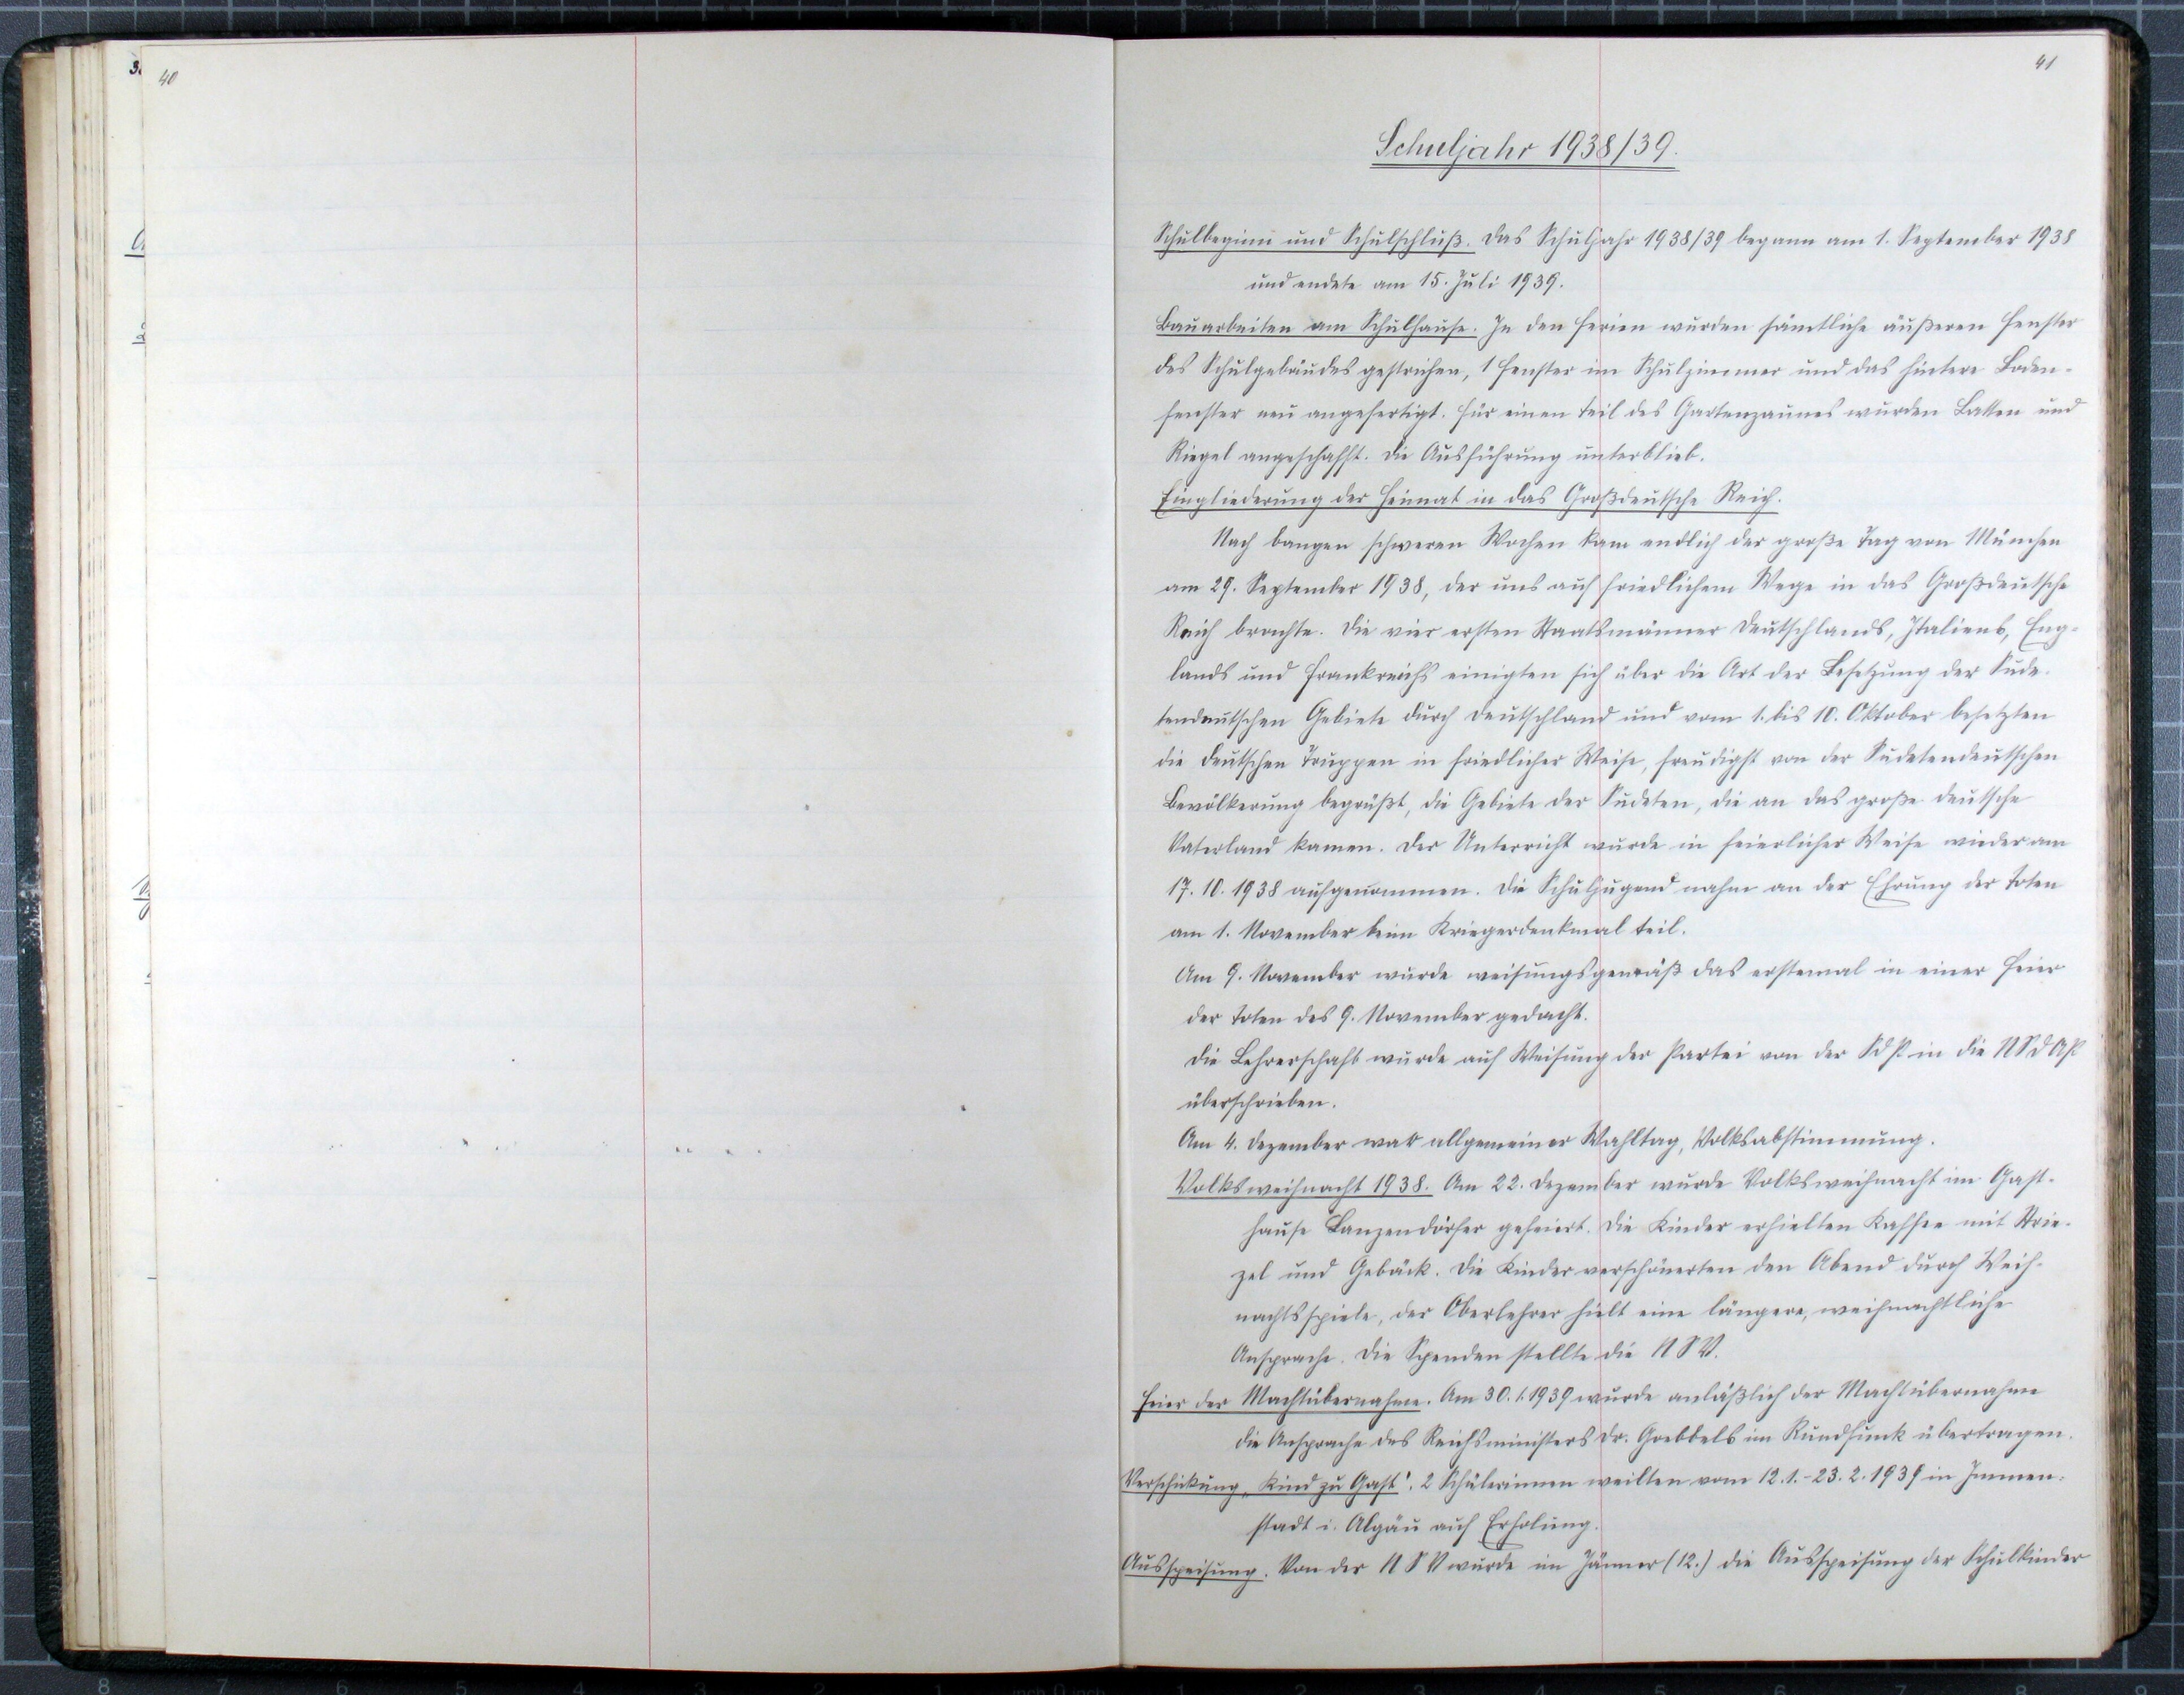 40
41
Schuljahr 1938/39.
Schulbeginn und Schulschluß. Das Schuljahr 1938/39 begann am 1. September 1938
und endete am 15. Juli 1939.
Bauarbeiten am Schulhause. In den Ferien wurden sämtliche äußeren Fenster
des Schulgebäudes gestrichen, 1 Fenster im Schulzimmer und das hintere Boden-
fenster neu angefertigt. Für einen Teil des Gartenzaunes wurden Latten und
Riegel angeschafft. Die Ausführung unterblieb.
Eingliederung der Heimat in das Großdeutsche Reich.
Nach bangen schweren Wochen kam endlich der große Tag von München
am 29. September 1938, der uns auf friedlichem Wege in das Großdeutsche
Reich brachte. Die vier ersten Staatsmänner Deutschlands, Italiens, Eng-
lands und Frankreichs einigten sich über die Art der Besetzung der Sude-
tendeutschen Gebiete durch Deutschland und vom 1. bis 10. Oktober besetzten
die deutschen Truppen in friedlicher Weise, freudigst von der Sudetendeutschen
Bevölkerung begrüßt, die Gebiete der Sudeten, die an das große deutsche
Vaterland kamen. Der Unterricht wurde in feierlicher Weise wieder am
17. 10. 1938 aufgenommen. Die Schuljugend nahm an der Ehrung der Toten
am 1. November beim Kriegerdenkmal teil.
Am 9. November wurde weisungsgemäß das erstemal in einer Feier
der Toten des 9. November gedacht.
Die Lehrerschaft wurde auf Weisung der Partei von der SdP in die NSDAP
überschrieben.
Am 4. Dezember war allgemeiner Wahltag, Volksabstimmung.
Volksweihnacht 1938. Am 22. Dezember wurde Volksweihnacht im Gast-
hause Lanzendörfer gefeiert. Die Kinder erhielten Kaffee mit Strie-
zel und Gebäck. Die Kinder verschönerten den Abend durch Weih-
nachtsspiele, der Oberlehrer hielt eine längere, weihnachtliche
Ansprache. Die Spenden stellte die NSV.
Feier der Machtübernahme. Am 30. 1. 1939 wurde anläßlich der Machtübernahme
die Ansprache des Reichsministers Dr. Goebbels im Rundfunk übertragen.
Verschickung „Kind zu Gast". 2 Schülerinnen weilten vom 12. 1. - 23. 2. 1939 in Immen-
stadt i. Algäu auf Erholung.
Ausspeisung. Von der NSV wurde im Jänner (12.) die Ausspeisung der Schulkinder